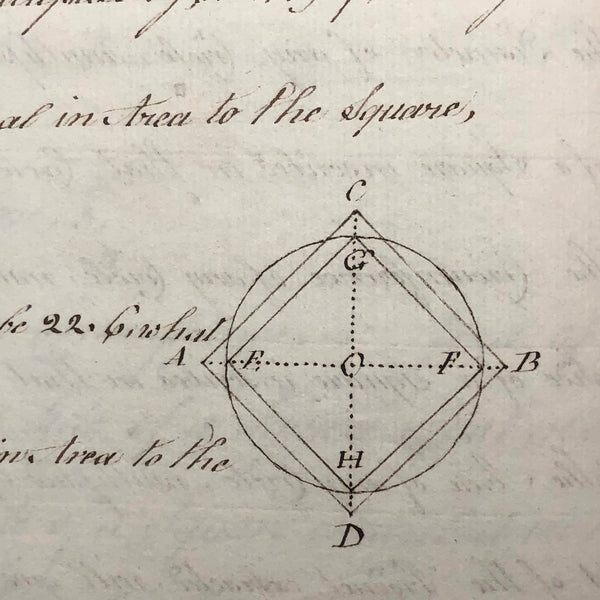 al in Area to the Square,
C
G
be 22. 6 what
A E O F B
in Area to the
H
D